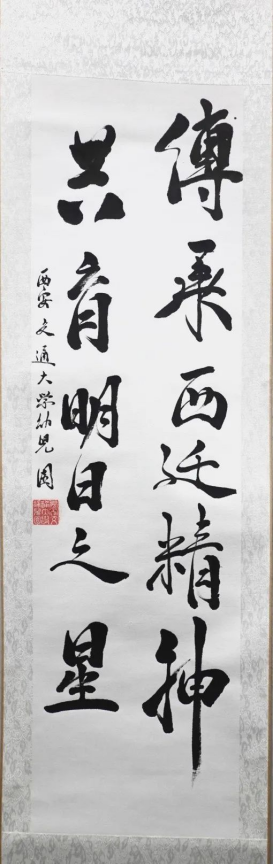 傳承西迁精神
共育明日之星
西安交通大学幼儿园